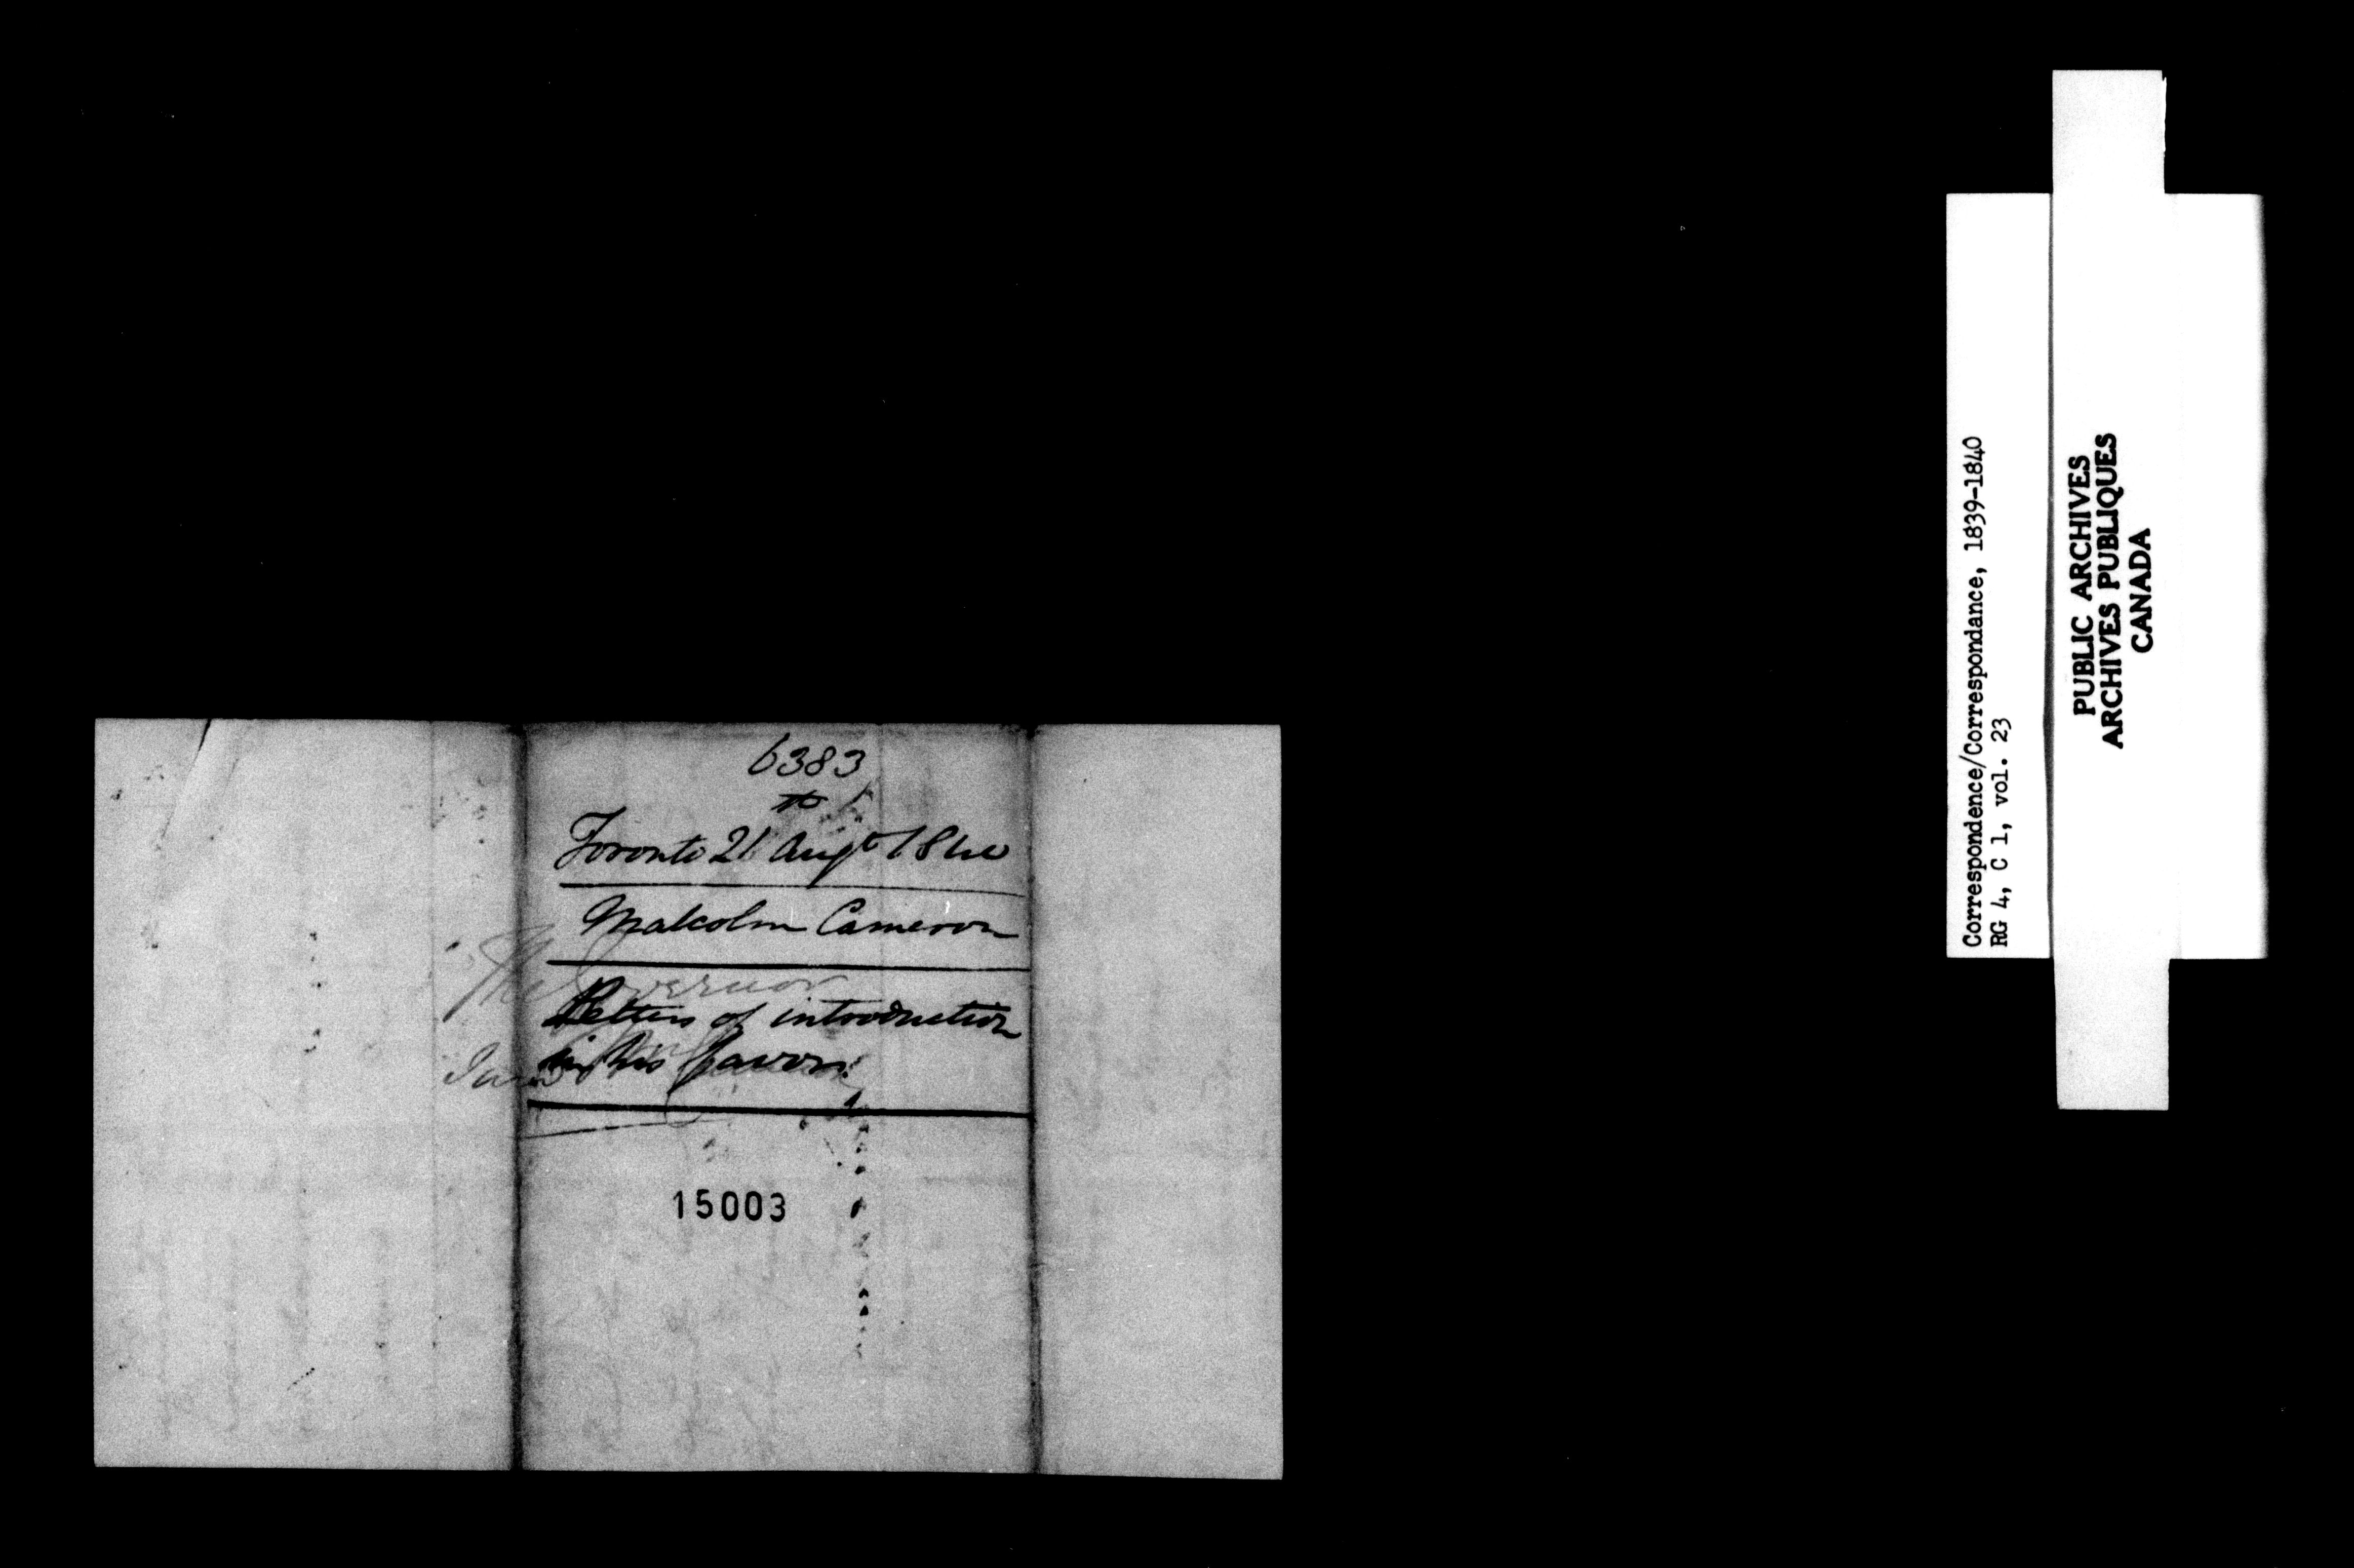 6383
Toronto 21 Augt 1840
Malcolm Cameron
The Governor
Letters of introduction
in his favor.
15003
Correspondence/Correspondance, 1839-1840
RG 4, C 1, vol. 23
PUBLIC ARCHIVES
ARCHIVES PUBLIQUES
CANADA